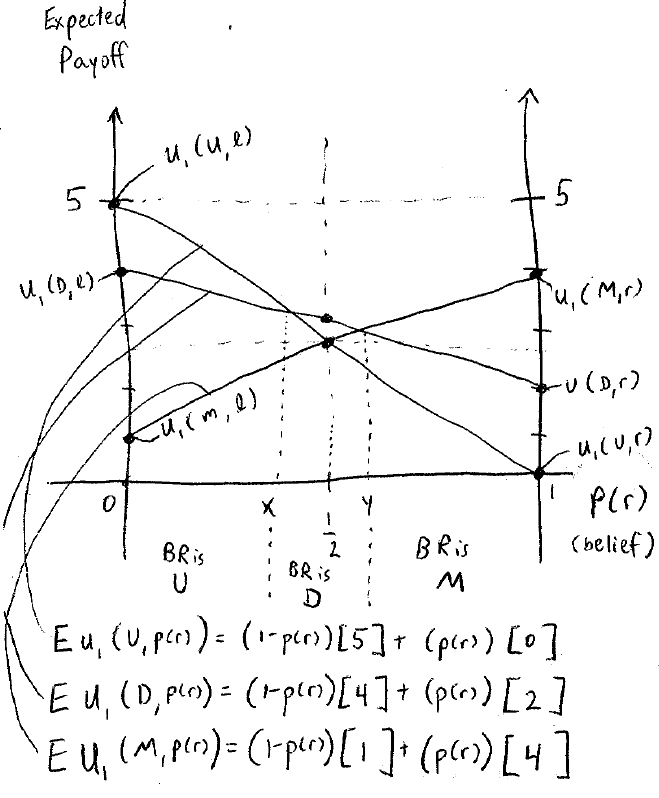 Expected
Payoff
u₁(U,ℓ)
5
5
u₁(D,ℓ)
u₁(M,r)
u₁(m,ℓ)
u(D,r)
u₁(U,r)
0
X
1/2
Y
1
P(r)
(belief)
BR is
U
BR is
D
BR is
M
E u₁(U,p(r)) = (1-p(r))[5] + (p(r))[0]
E U₁(D,p(r)) = (1-p(r))[4] + (p(r))[2]
E U₁(M,p(r)) = (1-p(r))[1] + (p(r))[4]